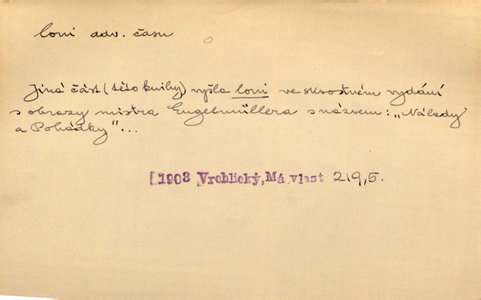 loni adv. času
Jiná část (této knihy) vyšla loni ve skvostném vydání
s obrazy mistra Engelmüllera s názvem: „Nálady
a Pohádky"...
[1903 Vrchlický, Má vlast 219,5.